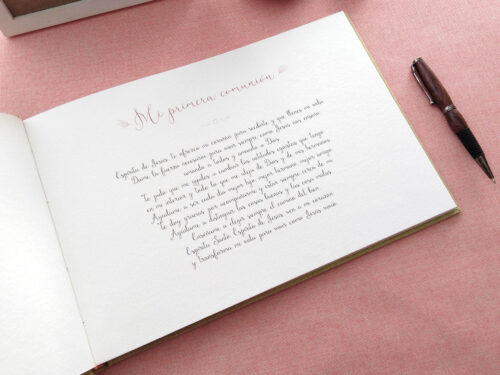 Mi primera comunión
Espíritu de Jesús, te ofrezco mi corazón para recibirte, y que llenes mi vida
Dame la fuerza necesaria para vivir siempre como Jesús nos enseñó
amando a todos y amando a Dios
Te pido que me ayudes a cambiar las actitudes egoístas que tengo
en mi interior y todo lo que me aleja de Dios y de mis hermanos
Ayúdame a ser cada día mejor hijo, mejor hermano, mejor amigo
te doy gracias por acompañarme y estar siempre cerca de mi
Ayúdame a distinguir las cosas buenas y las cosas malas
Enséñame a elegir siempre el camino del bien
Espíritu Santo, Espíritu de Jesús ven a mi corazón
y transforma mi vida para vivir como Jesús vivió